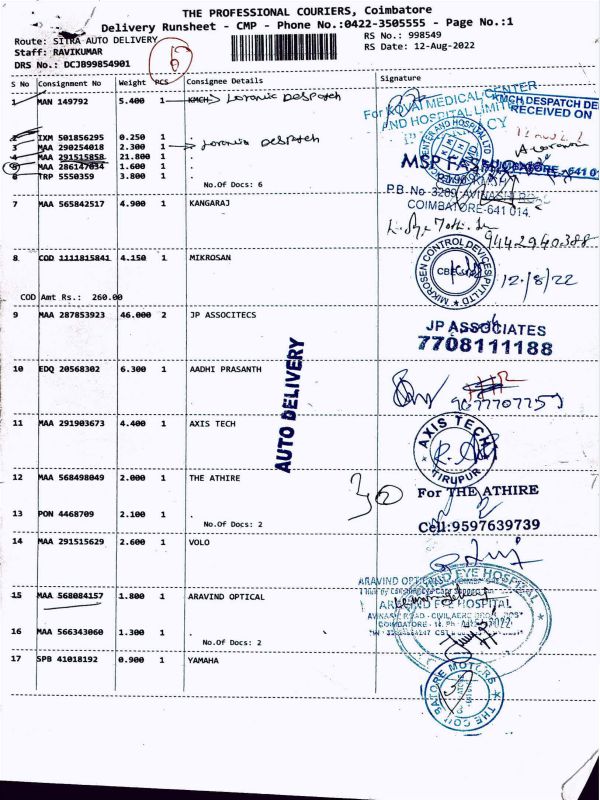 THE PROFESSIONAL COURIERS, Coimbatore
Delivery Runsheet - CMP - Phone No.:0422-3505555 - Page No.:1
Route: SITRA AUTO DELIVERY
Staff: RAVIKUMAR
DRS No.: DCJB99854901
RS No.: 998549
RS Date: 12-Aug-2022
S No Consignment No Weight PCS Consignee Details Signature
1 MAN 149792 5.400 1 KMCH Despatch
2 IXM 501856295 0.250 1 .
3 MAA 290254018 2.300 1 . Despatch
4 MAA 291515858 21.800 1 .
5 MAA 286147034 1.600 1 .
6 TRP 5550359 3.800 1 .
No.Of Docs: 6
KOVAI MEDICAL CENTER
AND HOSPITAL LIMITED
KMCH DESPATCH DE
RECEIVED ON
P.B. No- 3209, AVINASHI ROAD
COIMBATORE-641 014.
7 MAA 565842517 4.900 1 KANGARAJ
9442940388
8 COD 1111815841 4.150 1 MIKROSAN
COD Amt Rs.: 260.00
MIKROSEN CONTROL DEVICES PVT LTD
CBE
12/8/22
9 MAA 287853923 46.000 2 JP ASSOCITECS
JP ASSOCIATES
7708111188
10 EDQ 20568302 6.300 1 AADHI PRASANTH
AUTO DELIVERY
11 MAA 291903673 4.400 1 AXIS TECH
AXIS TECH
TIRUPUR
12 MAA 568498049 2.000 1 THE ATHIRE
30
For THE ATHIRE
13 PON 4468709 2.100 1 .
No.Of Docs: 2
Cell:9597639739
14 MAA 291515629 2.600 1 VOLO
15 MAA 568084157 1.800 1 ARAVIND OPTICAL
ARAVIND EYE HOSPITAL
16 MAA 566343060 1.300 1 .
No.Of Docs: 2
17 SPB 41018192 0.900 1 YAMAHA
THE COIMBATORE MOTORS